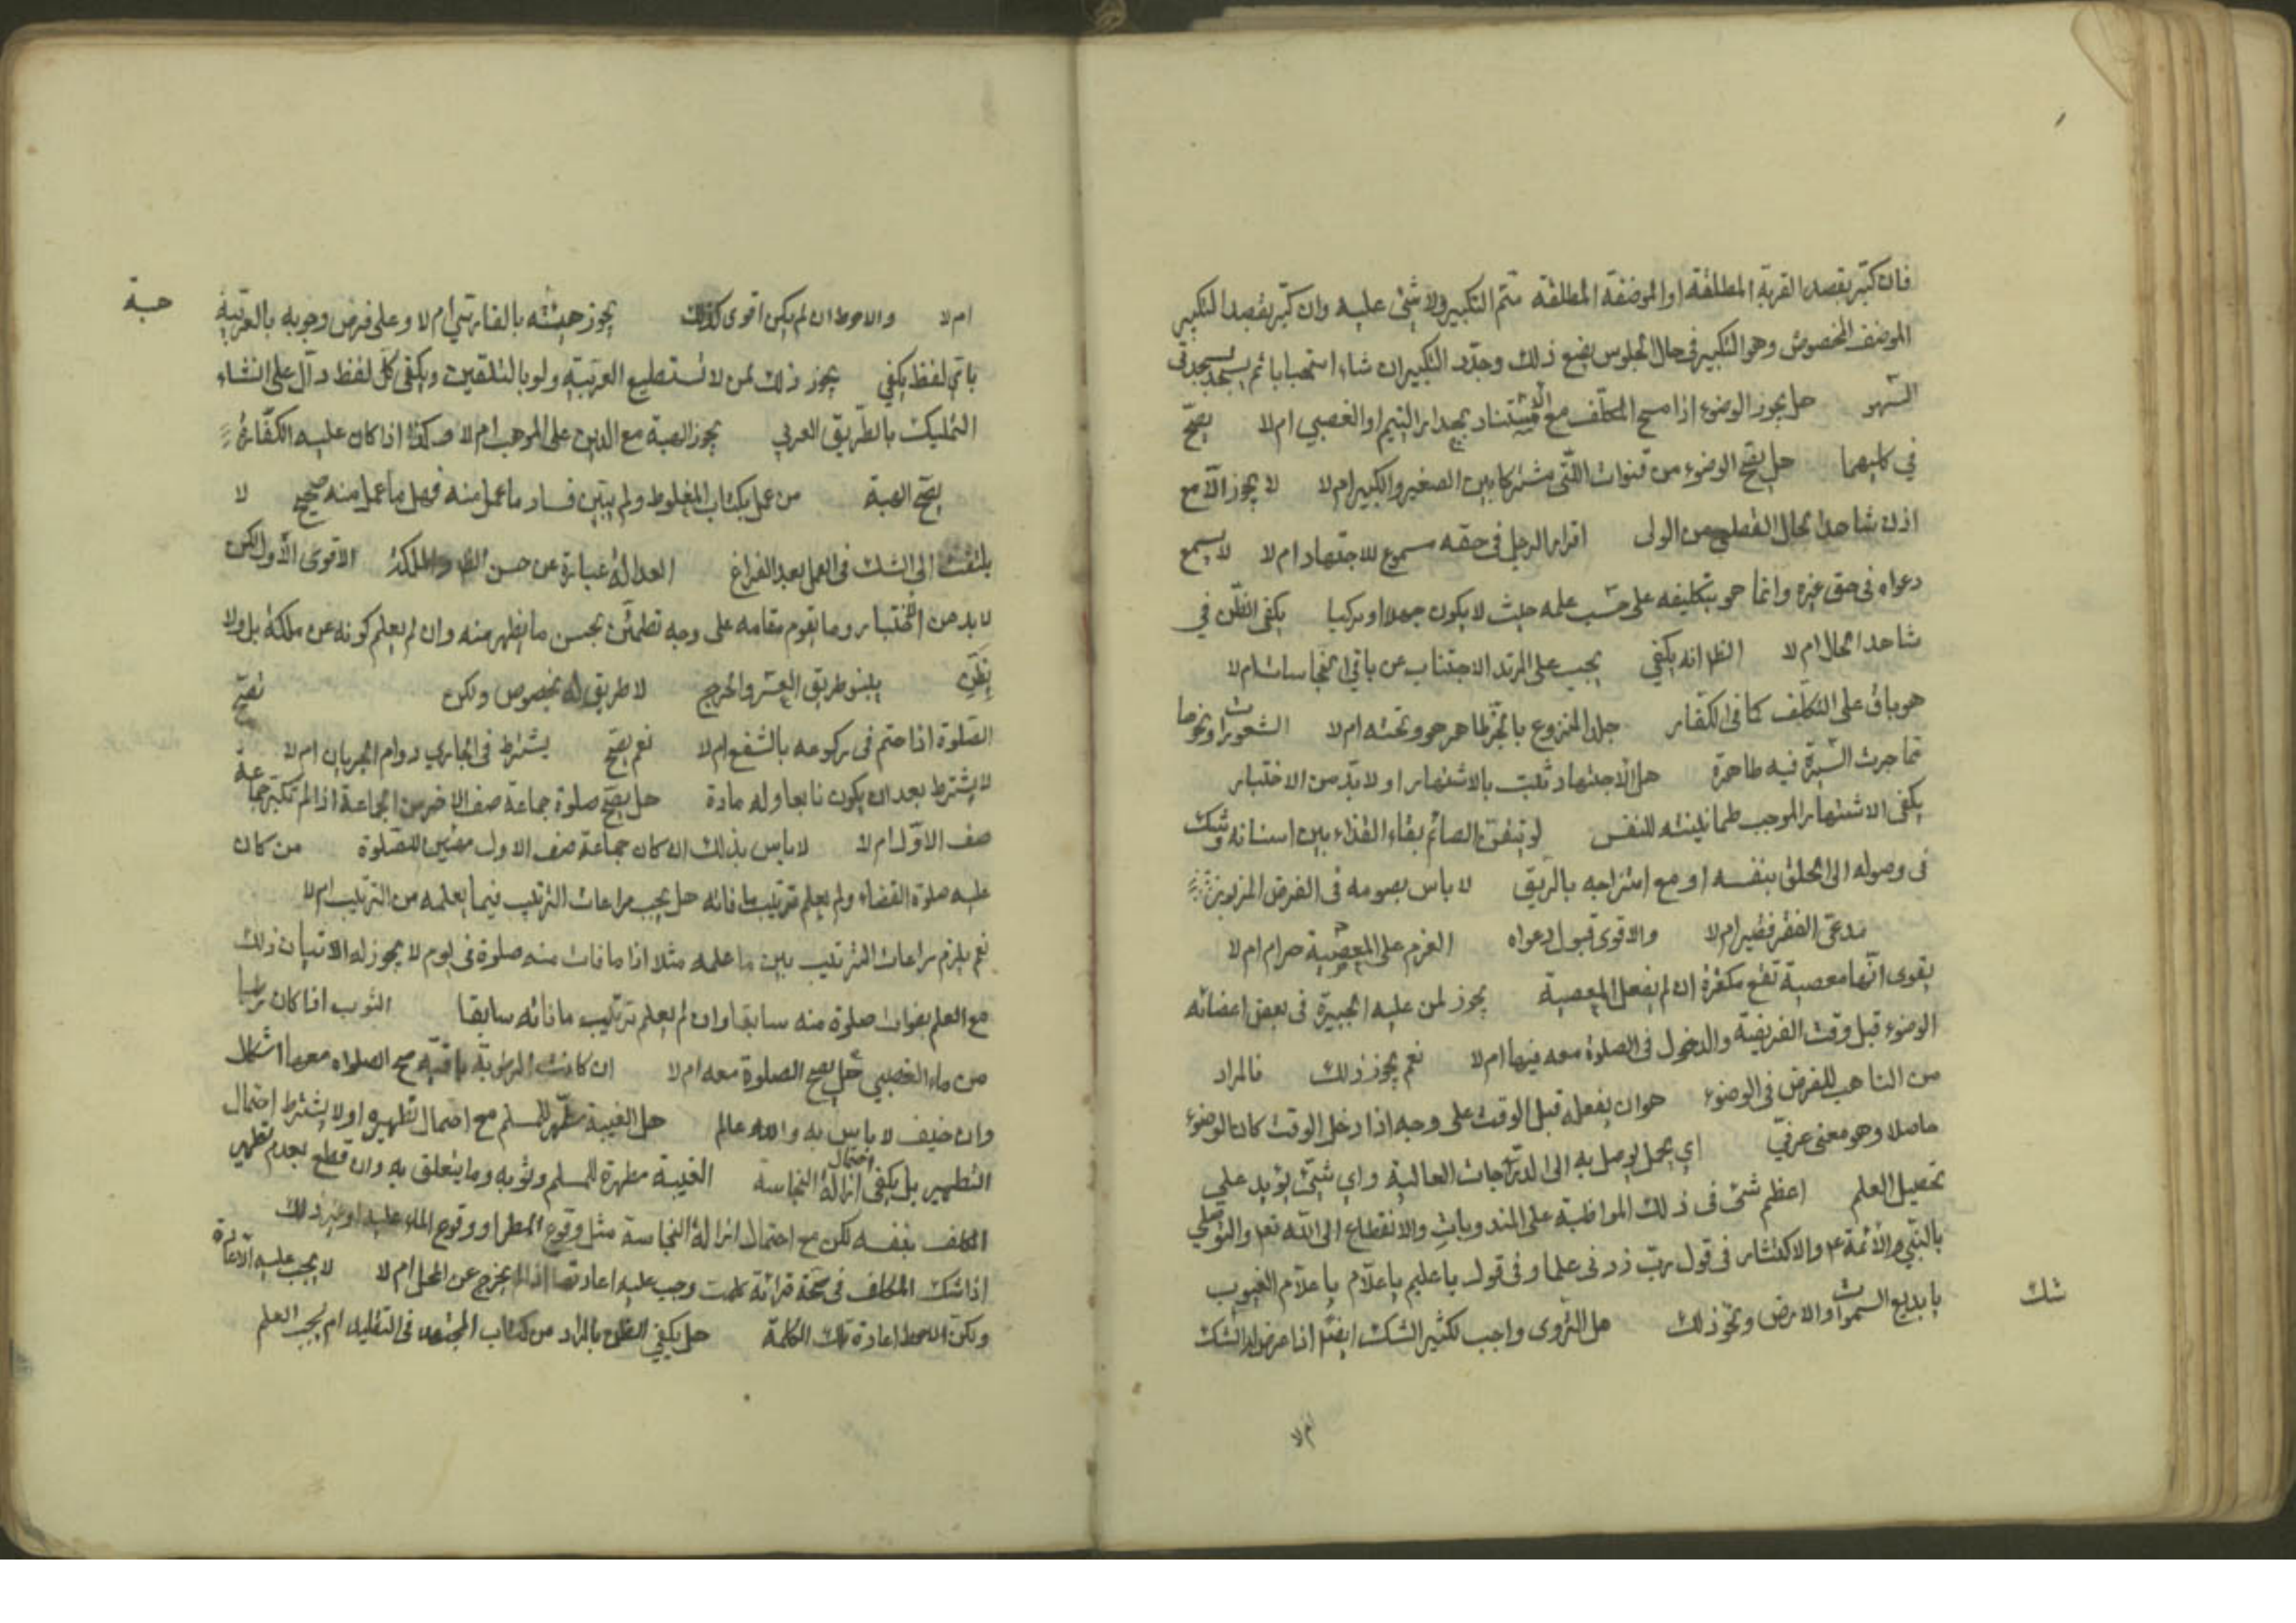 فان كبّر بقصد القربة المطلقة او الموضفة المطلقة متم التكبير ولا شئ عليه وان كبّر بقصد التكبير
الموضف المخصوص وهو التكبير في حال الجلوس يضع ذلك وجدّد التكبير ان شاء استحبابا ثم يسجد سجدتى
السّهو هل يجوز الوضوء اذا مسح المكلّف مع الاستناد بجدار اليتيم او الغصبي ام لا يصحّ
في كليهما هل يصحّ الوضوء من قنوات اللتى مشتركا بين الصغير والكبير ام لا لا يجوز الّا مع
اذن شاهد الحال القطعي من الولى اقرار الرجل في حقه مسموع للاجتهاد ام لا لا يسمع
دعواه في حق غيره وانما هو بتكليفه على حسب علمه حيث لا يكون جهلا مركبا يكفى الظّن في
شاهد الحال ام لا الظ انه يكفي يجب على المرتد الاجتناب عن باقي النجاسات ام لا
هو باق على التكلّف كما في الكفّار جلد المنزوع بالجرّ طاهر هو وتحته ام لا الشعورات ونحوها
مما جرت السّيرة فيه طاهرة هل الاجتهاد تثبت بالاشتهار او لا بدّ من الاختبار
يكفى الاشتهار الموجب طمانينته للنفس لو تيقّن الصائم بقاء الغذاء بين اسنانه وشك
في وصوله الى الحلق بنفسه او مع امتزاجه بالرّيق لا باس بصومه في الفرض المزبور
مدعى الفقر فقير ام لا والاقوى قبول دعواه العزم على المعصية حرام ام لا
يقوى انّها معصية تقع مكفرة ان لم يفعل المعصية يجوز لمن عليه الجبيرة في بعض اعضائه
الوضوء قبل وقت الفريضة والدخول في الصلوة معه فيها ام لا نعم يجوز ذلك فالمراد
من التاهب للفرض في الوضوء هو ان يفعله قبل الوقت على وجه اذا دخل الوقت كان الوضوء
حاصلا وهو معنى عرفيّ اي عمل يوصل به الى الدرّجات العالية واي شئ يؤيد على
تحصيل العلم اعظم شئ في ذلك المواظبة على المندوبات والانقطاع الى الله تعو والتوسّل
بالنّبي والائمة ع والاكثار في قول ربّ زدنى علما وفي قول يا عليم يا علّام يا علّام الغيوب
يا بديع السموات والارض ونحو ذلك هل التّروى واجب لكثير الشك ايضا اذا عرض له الشك
شك
ام لا
ام لا والاحوط ان لم يكن اقوى كذلك يجوز هبته بالفارسي ام لا وعلى فرض وجوبه بالعربيّة
هبة
باي لفظ يكفي يجوز ذلك لمن لا تستطيع العربيّة ولو بالتلقين ويكفى كل لفظ دالّ على انشاء
التمليك بالطّريق العربي يجوز الهبة مع الدين على الموهب ام لا وكذا اذا كان عليه الكفّارة
يصّح الهبة من عمل بكتاب المغلوط ولم يتبيّن فساد ما عمل منه فهل ما عمل منه صحيح لا
يلتفت الى الشك في العمل بعد الفراغ العدالة عبارة عن حسن الظ والملكة الاقوى الاول لكن
لا بد من الاختبار وما يقوم مقامه على وجه تطمئن بحسن ما يظهر منه وان لم يعلم كونه عن ملكة بل ولا
يظنّ يلينو طريق اليعسر والحرج لا طريق له بخصوص ولكن تصحّ
الصّلوة اذا ختم في ركوعه بالشفع ام لا نعم يصحّ يشترط في الجاري دوام الجريان ام لا
لا يشترط بعد ان يكون نابعا وله مادة هل يصحّ صلوة جماعة صف الاخر من الجماعة اذا لم تكبّر جماعة
صف الاوّل ام لا لا باس بذلك اذا كان جماعة صف الاول مهيّين للصّلوة من كان
عليه صلوة القضاء ولم يعلم ترتيب ما فاته هل يجب مراعات الترتيب فيما يعلمه من الترتيب ام لا
نعم يلزم مراعات الترتيب بين ما علمه مثلا اذا ما فات منه صلوة في يوم لا يجوز له الاتيان ذلك
مع العلم بفوات صلوة منه سابقا وان لم يعلم ترتيب ما فاته سابقا الثوب اذا كان رطبا
من ماء الغصبي هل يصح الصلوة معه ام لا ان كانت الرطوبة باقية صح الصلواه معها اشكال
وان خيف لا باس به والله عالم هل الغيبة مطّهر للمسلم مع احتمال تطهيره او لا يشترط احتمال
التطهير بل يكفى احتمال ازالة النجاسة الغيبة مطهرة للمسلم وثوبه وما يتعلق به وان قطع بعدم تطهير
المكلف بنفسه لكن مع احتمال ازالة النجاسة مثل وقوع المطر او وقوع الماء عليه او غير ذلك
اذا شك المكلف في صحّة قرائة كلمت وجب عليه اعادتها اذا لم يخرج عن المحل ام لا لا يجب عليه الاعادة
ولكن الاحوط اعادة تلك الكلمة هل يكفي الظن بالمراد من كتاب المجتهد في التقليد ام يجب العلم